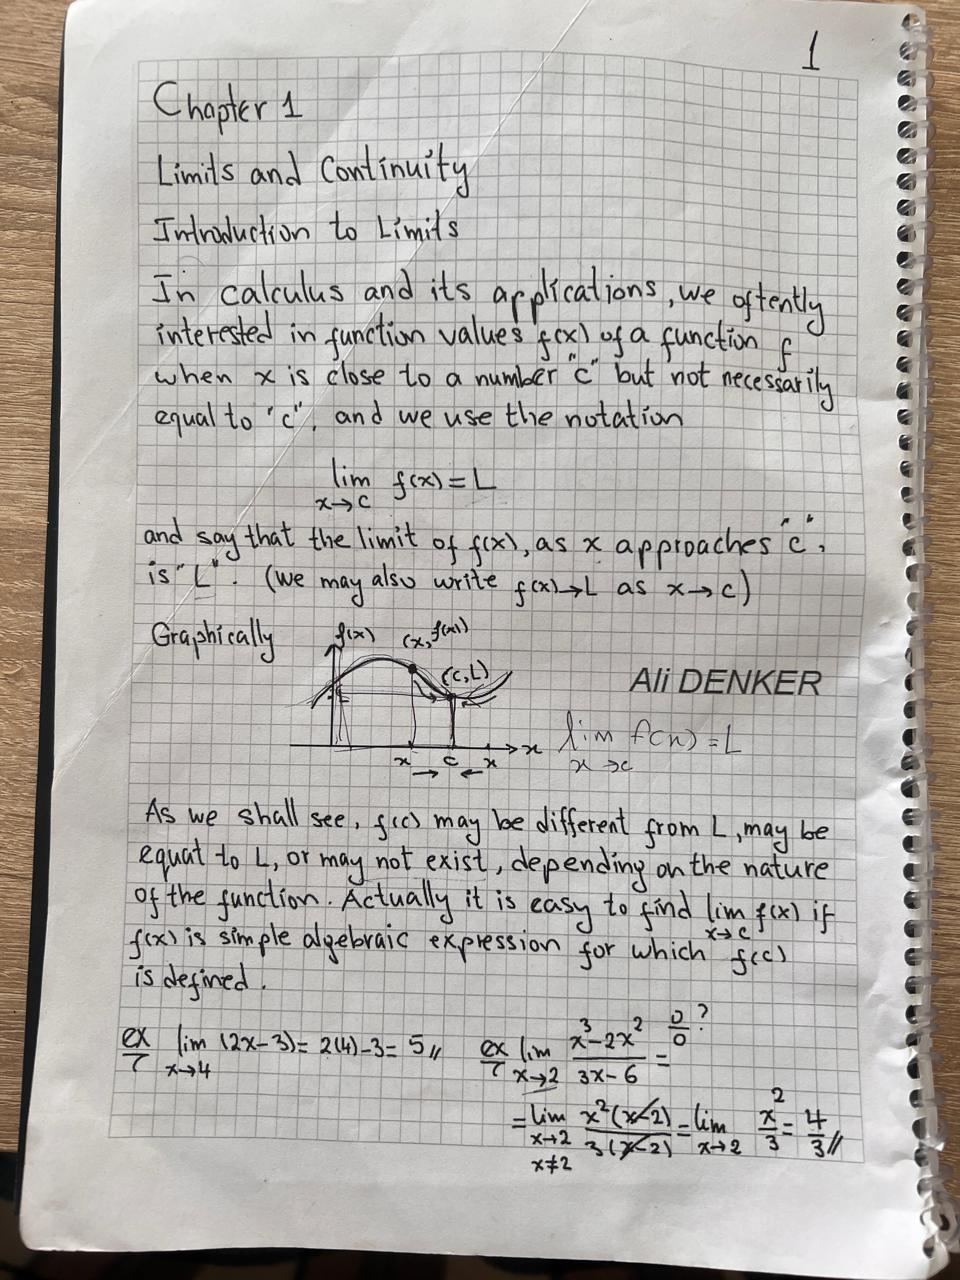 1
Chapter 1
Limits and Continuity
Introduction to Limits
In calculus and its applications, we oftently
interested in function values f(x) of a function f
when x is close to a number "c" but not necessarily
equal to "c", and we use the notation
lim f(x) = L
x→c
and say that the limit of f(x), as x approaches "c",
is "L". (we may also write f(x)→L as x→c)
Graphically
f(x) (x, f(x))
(c, L)
L
x c x x
→ ←
Ali DENKER
lim f(x) = L
x→c
As we shall see, f(c) may be different from L, may be
equat to L, or may not exist, depending on the nature
of the function. Actually it is easy to find lim f(x) if
x→c
f(x) is simple algebraic expression for which f(c)
is defined.
ex/ lim (2x-3) = 2(4)-3 = 5 //
x→4
ex/ lim x³-2x² / 3x-6 = 0/0 ?
x→2
= lim x²(x-2) / 3(x-2) = lim x²/3 = 4/3 //
x→2 x→2
x≠2